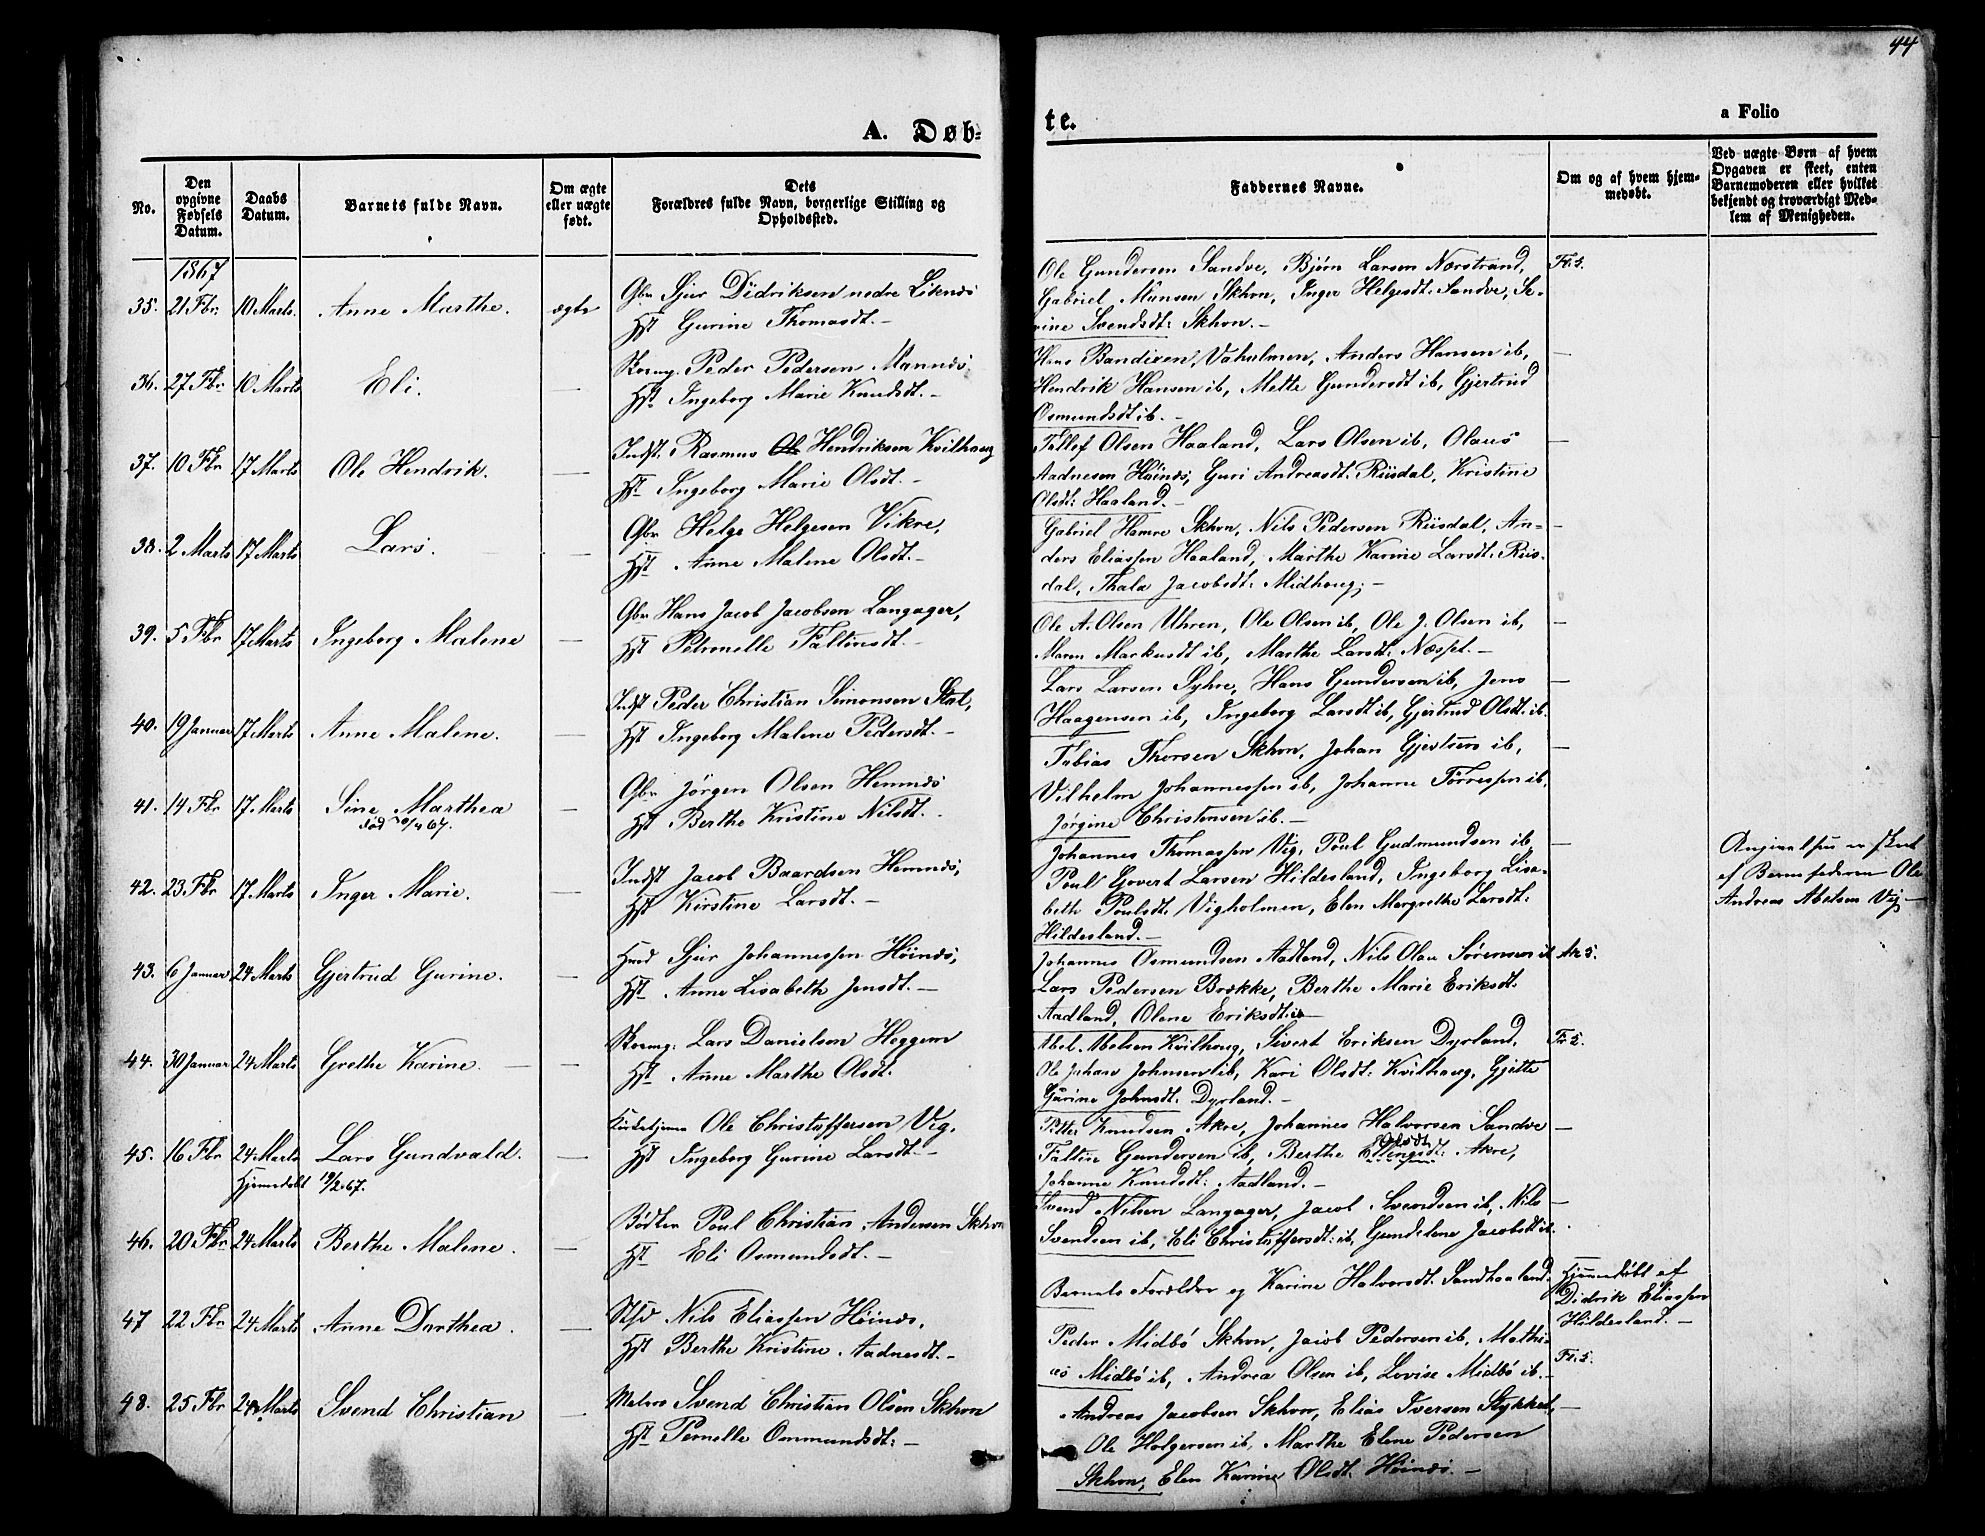 44
A. Døb-
te.
a Folio
No.
Den opgivne Fødsels Datum.
Daabs Datum.
Barnets fulde Navn.
Om ægte eller uægte født.
Dets Forældres fulde Navn, borgerlige Stilling og Opholdssted.
Faddernes Navne.
Om og af hvem hjemmedøbt.
Ved uægte Børn af hvem Opgaven er skeet, enten Barnemoderen eller hvilket bekjendt og troværdigt Medlem af Menigheden.
1867
35. 21 Fbr. 10 Marts. Anne Marthe. ægte
Gbr Sjur Didriksen nedre Liknes
Hst Gurine Thomasdt. -
Ole Gundersen Sandve, Bjørn Larsen Norstrand,
Gabriel Munsen Skhvn, Inger Helgesdt: Sandve, Se-
rine Svendsdt: Skhvn. -
36. 27 Fbr 10 Marts Eli. —
Peder Pedersen Mannes.
Hst. Ingeborg Marie Knudsdt. -
Vaholmen, Anders Hansen ib,
Hendrik Hansen ib, Mette Gundersdt ib, Gjertrud
Osmundsdt ib. -
37. 10 Fbr 17 Marts Ole Hendrik. —
Indst. Rasmus Ole Hendriksen Kvilhaug
Hst Ingeborg Marie Olsdt. -
Tollef Olsen Haaland, Lars Olsen ib, Olaus
Aadnesen Høines, Guri Andreasdt: Riisdal, Kristine
Olsdt: Haaland. -
38. 2 Marts 17 Marts Lars. —
Gbr Helge Helgesen Vikre,
Hst Anne Malene Olsdt. -
Gabriel Hamre Skhvn, Nils Pedersen Riisdal, An-
ders Eliassen Haaland, Marthe Karine Larsdt: Riis-
dal, Thala Jacobsdt: Midhaug, -
39. 5 Fbr 17 Marts Ingeborg Malene —
Gbr Hans Jacob Jacobsen Langager,
Hst Petronelle Faltinsdt. -
Ole A. Olsen Uhren, Ole Olsen ib, Ole J. Olsen ib,
Maren Markusdt ib, Marthe Larsdt: Nesset. -
40. 19 Januar 17 Marts Anne Malene. —
Indst Peder Christian Simonsen Stol,
Hst Ingeborg Malene Pedersdt. -
Lars Larsen Syhre, Hans Gundersen ib, Jens
Haagensen ib, Ingeborg Larsdt ib, Gjertrud Olsdt. ib.
41. 14 Fbr 17 Marts Sine Marthea —
Gbr Jørgen Olsen Hemnes
Hst Berthe Kristine Nilsdt.
Tobias Thorsen Skhvn, Johan Gjertsen ib,
Vilhelm Johannessen ib, Johanne Tørressen ib,
Jørgine Christensen ib. -
42. 23 Fbr 17 Marts Inger Marie. —
Indst Jacob Baardsen Hemnes,
Hst Kirstine Larsdt. -
Johannes Thomassen Vig, Poul Gudmundsen ib,
Poul Govert Larsen Hildesland, Ingeborg Lisa-
beth Poulsdt: Vigholmen, Elen Margrethe Larsdt:
Hildesland. -
Angivelsen er skeet
af Barnefaderen Ole
Andreas Abelsen Vig -
43. 6 Januar 24 Marts Gjertrud Gurine. —
Sjur Johannessen Høines,
Hst Anne Lisabeth Jensdt. -
Johannes Osmundsen Aadland, Nils Olai Sørensen ib
Lars Pedersen Brække, Berthe Marie Eriksdt:
Aadland, Olene Eriksdt: ib
44. 30 Januar 24 Marts Grethe Karine. —
Lars Danielsen Heggem
Hst Anne Marthe Olsdt.
Abel Abelsen Kvilhaug, Sivert Eriksen Dyrland,
Ole Johan Johnsen ib, Kari Olsdt: Kvilhaug, Gjitte
Gurine Johnsdt: Dyrland. -
45. 16 Fbr 24 Marts Lars Gundvald. —
Hjemmedøbt 19/2 67.
Ole Christoffersen Vig.
Hst Ingeborg Gurine Larsdt. -
Petter Knudsen Akre, Johannes Halvorsen Sandve
Faltin Gundersen ib, Berthe Akre,
Johanne Knudsdt: Aadland. -
46. 20 Fbr 24 Marts Berthe Malene. —
Bødker Poul Christian Andersen Skhvn
Hst Eli Osmundsdt. -
Svend Nilsen Langager, Jacob Svendsen ib, Nils
Svendsen ib, Eli Christoffersdt: ib, Gundelene Jacobsdt ib
47 22 Fbr 24 Marts Anne Dorthea. —
Nils Eliassen Høines.
Hst Berthe Kristine Aadnesdt. -
Barnets Forældre og Karine Halvorsdt. Sandhaaland.
Hjemmedøbt af
Didrik Eliassen
Hildesland. -
Peder Midbø Skhvn, Jacob Pedersen ib, Mathi-
as Midbø ib, Andrea Olsen ib, Lovise Midbø ib. -
48. 25 Fbr 24 Marts Svend Christian —
Svend Christian Olsen Skhvn
Hst Pernelle Ommundsdt: -
Andreas Jacobsen Skhvn, Elias Iversen Stykket,
Ole Holgersen ib, Marthe Elene Pedersen
Skhvn, Elen Karine Olsdt. Høines. -